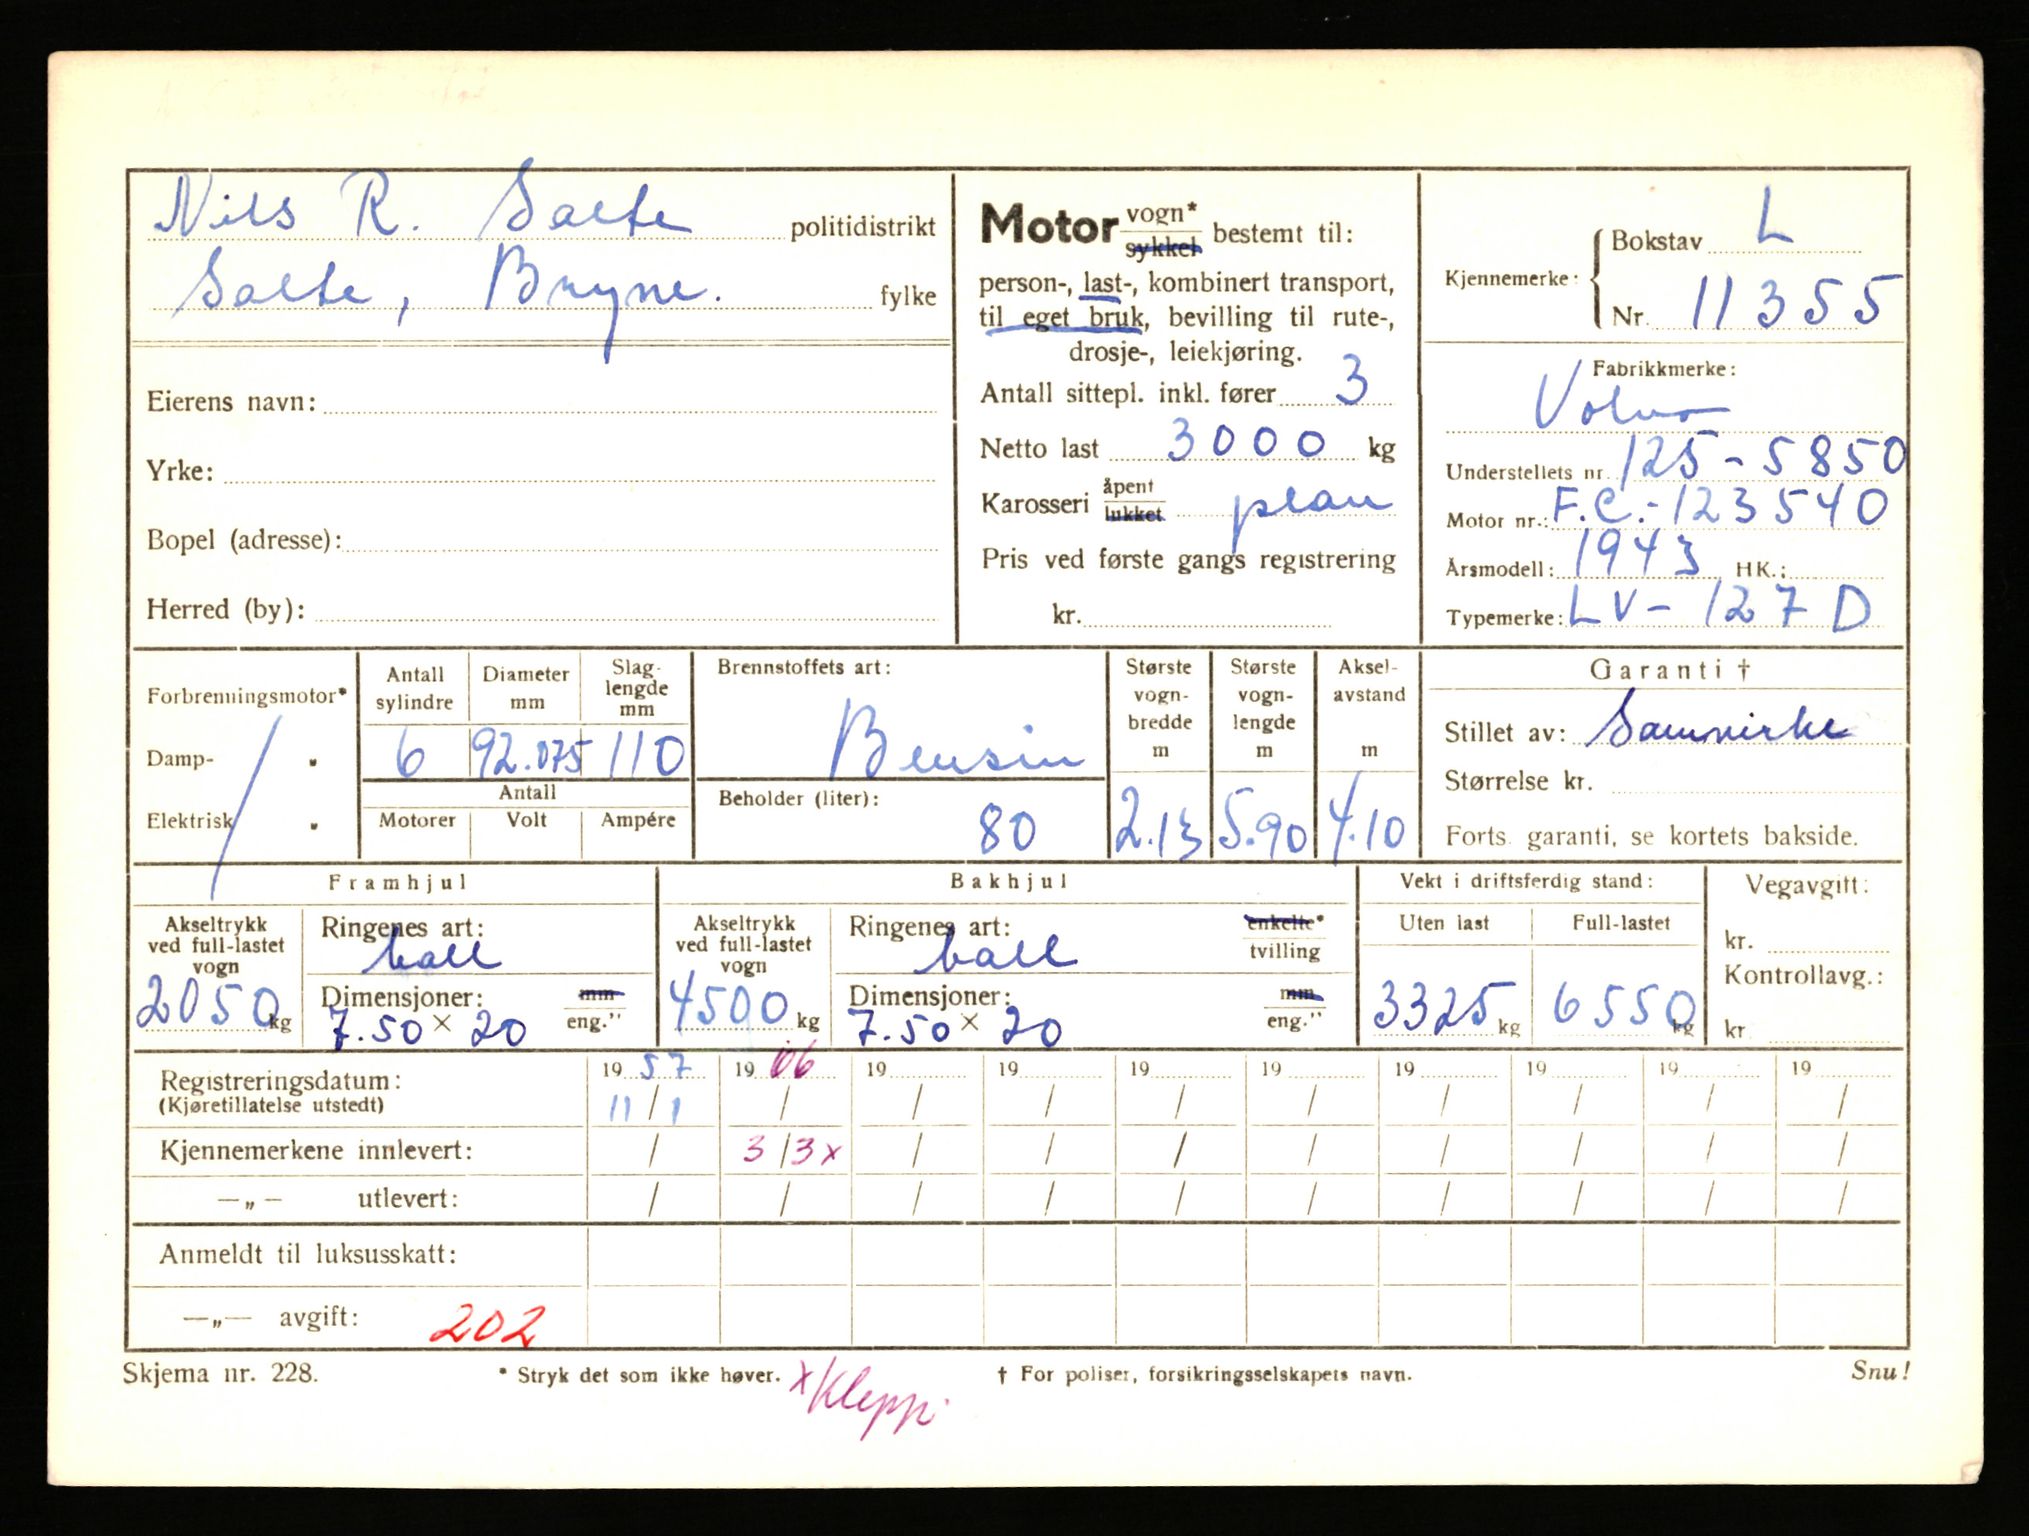 Nils R. Salte politidistrikt
Salte, Bryne. fylke
Eierens navn:
Yrke:
Bopel (adresse):
Herred (by):
Motor vogn* sykkel bestemt til:
person-, last-, kombinert transport,
til eget bruk, bevilling til rute-,
drosje-, leiekjøring.
Antall sittepl. inkl. fører 3
Netto last 3000 kg
Karosseri åpent lukket plan
Pris ved første gangs registrering
kr.
Kjennemerke: Bokstav L
Nr. 11355
Fabrikkmerke:
Volvo
Understellets nr. 125-5850
Motor nr.: F.C.-123540
Årsmodell: 1943 HK.:
Typemerke: LV-127 D
Forbrenningsmotor*
Damp- "
Elektrisk "
Antall sylindre Diameter mm Slaglengde mm
6 92.075 110
Antall
Motorer Volt Ampére
Brennstoffets art:
Bensin
Beholder (liter):
80
Største vognbredde m
2.13
Største vognlengde m
5.90
Akselavstand m
4.10
Garanti †
Stillet av: Samvirke
Størrelse kr.
Forts. garanti, se kortets bakside.
Framhjul
Akseltrykk ved full-lastet vogn
2050 kg
Ringenes art:
ball
Dimensjoner: mm eng."
7.50 × 20
Bakhjul
Akseltrykk ved full-lastet vogn
4500 kg
Ringenes art: enkelte* tvilling
ball
Dimensjoner: mm eng."
7.50 × 20
Vekt i driftsferdig stand:
Uten last Full-lastet
3325 kg 6550 kg
Vegavgift:
kr.
Kontrollavg.:
kr
Registreringsdatum: 19 57 19 66 19 19 19 19 19 19 19 19
(Kjøretillatelse utstedt) 11/1 / / / / / / / / /
Kjennemerkene innlevert: / 3/3x / / / / / / / /
—„— utlevert: / / / / / / / / / /
Anmeldt til luksusskatt:
—„— avgift: 202
Skjema nr. 228. * Stryk det som ikke høver. x/Klepp † For poliser, forsikringsselskapets navn. Snu!